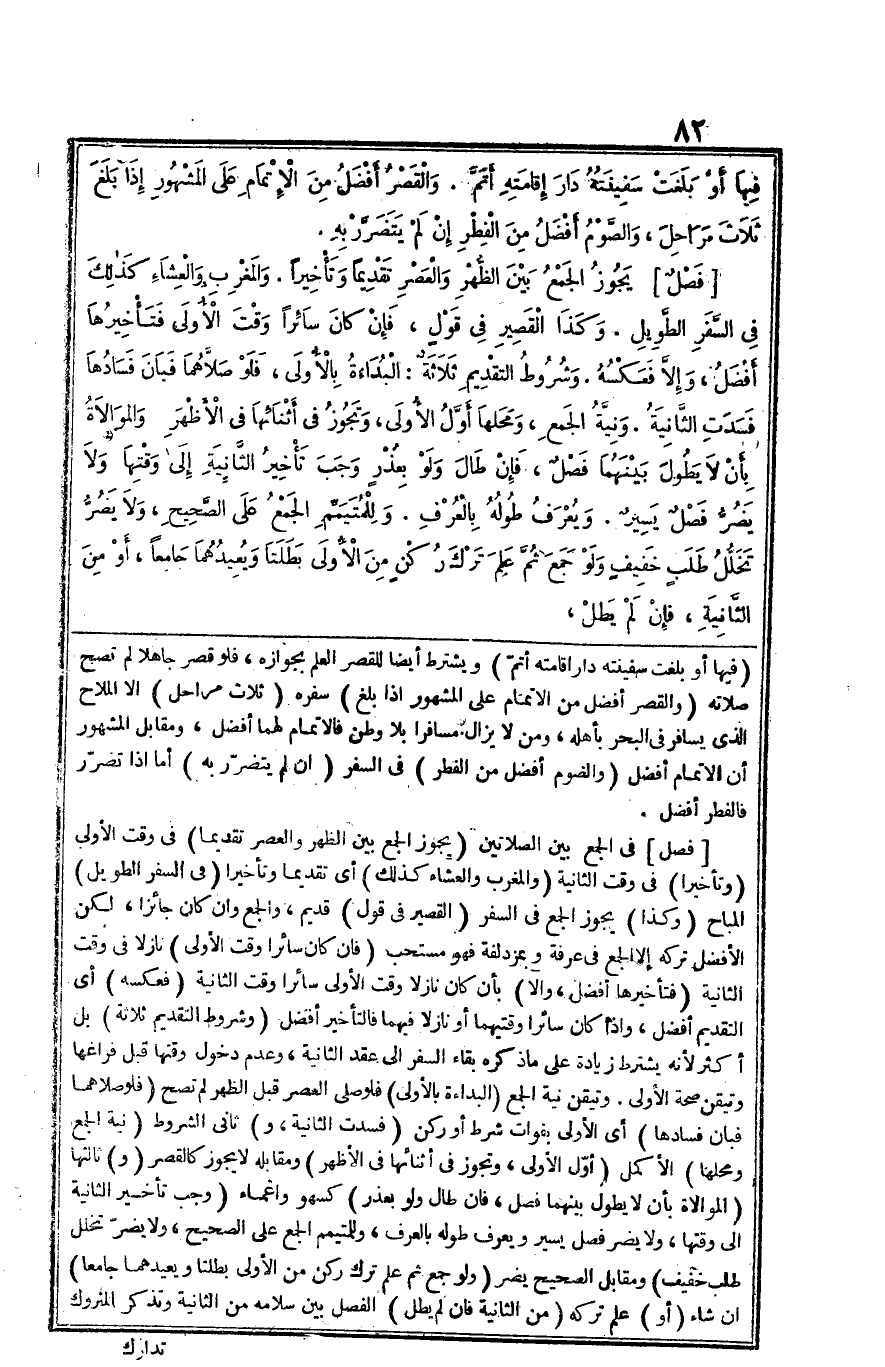 ٨٢
فِيهَا أَوْ بَلَغَتْ سَفِينَتُهُ دَارَ إِقَامَتِهِ أَتَمَّ . وَالْقَصْرُ أَفْضَلُ مِنَ الْإِتْمَامِ عَلَى المَشْهُورِ إِذَا بَلَغَ
ثَلَاثَ مَرَاحِلَ ، وَالصَّوْمُ أَفْضَلُ مِنَ الْفِطْرِ إِنْ لَمْ يَتَضَرَّرْ بِهِ .
[ فَصْلٌ ] يَجُوزُ الجَمْعُ بَيْنَ الظُّهْرِ وَالْعَصْرِ تَقْدِيماً وَتَأْخِيراً . وَالمَغْرِبِ وَالْعِشَاءِ كَذٰلِكَ
فِي السَّفَرِ الطَّوِيلِ . وَكَذَا الْقَصِيرِ فِي قَوْلٍ ، فَإِنْ كَانَ سَائِراً وَقْتَ الْأُولَى فَتَأْخِيرُهَا
أَفْضَلُ ، وَإِلَّا فَعَكْسُهُ . وَشُرُوطُ التَّقْدِيمِ ثَلَاثَةٌ : الْبُدَاءَةُ بِالْأُولَى ، فَلَوْ صَلَّاهُمَا فَبَانَ فَسَادُهَا
فَسَدَتِ الثَّانِيَةُ . وَنِيَّةُ الجَمْعِ ، وَمَحَلُّهَا أَوَّلُ الْأُولَى ، وَتَجُوزُ فِى أَثْنَائِهَا فِى الْأَظْهَرِ وَالْمُوَالَاةُ
بِأَنْ لَا يَطُولَ بَيْنَهُمَا فَصْلٌ ، فَإِنْ طَالَ وَلَوْ بِعُذْرٍ وَجَبَ تَأْخِيرُ الثَّانِيَةِ إِلَى وَقْتِهَا وَلَا
يَضُرُّ فَصْلٌ يَسِيرٌ . وَيُعْرَفُ طُولُهُ بِالْعُرْفِ . وَلِلْمُتَيَمِّمِ الجَمْعُ عَلَى الصَّحِيحِ ، وَلَا يَضُرُّ
تَخَلُّلُ طَلَبٍ خَفِيفٍ وَلَوْ جَمَعَ ثُمَّ عَلِمَ تَرْكَ رُكْنٍ مِنَ الْأُولَى بَطَلَتَا وَيُعِيدُهُمَا جَامِعاً ، أَوْ مِنَ
الثَّانِيَةِ ، فَإِنْ لَمْ يَطُلْ ،
( فيها أو بلغت سفينته دار اقامته أتمّ ) ويشترط أيضا للقصر العلم بجوازه ، فلو قصر جاهلا لم تصح
صلاته ( والقصر أفضل من الاتمام على المشهور اذا بلغ ) سفره ( ثلاث مراحل ) الا الملاح
الذى يسافر فى البحر بأهله ، ومن لا يزال مسافرا بلا وطن فالاتمام لهما أفضل ، ومقابل المشهور
أن الاتمام أفضل ( والصوم أفضل من الفطر ) فى السفر ( ان لم يتضرّر به ) أما اذا تضرّر
فالفطر أفضل .
[ فصل ] فى الجمع بين الصلاتين ( يجوز الجمع بين الظهر والعصر تقديما ) فى وقت الأولى
( وتأخيرا ) فى وقت الثانية ( والمغرب والعشاء كذلك ) أى تقديما وتأخيرا ( فى السفر الطويل )
المباح ( وكذا ) يجوز الجمع فى السفر ( القصير فى قول ) قديم ، والجمع وان كان جائزا ، لكن
الأفضل تركه إلا الجمع فى عرفة وبمزدلفة فهو مستحب ( فان كان سائرا وقت الأولى ) نازلا فى وقت
الثانية ( فتأخيرها أفضل ، والا ) بأن كان نازلا وقت الأولى سائرا وقت الثانية ( فعكسه ) أى
التقديم أفضل ، واذا كان سائرا وقتيهما أو نازلا فيهما فالتأخير أفضل ( وشروط التقديم ثلاثة ) بل
أكثر لأنه يشترط زيادة على ماذكره بقاء السفر الى عقد الثانية ، وعدم دخول وقتها قبل فراغها
وتيقن صحة الأولى . وتيقن نية الجمع ( البداءة بالأولى ) فلو صلى العصر قبل الظهر لم تصح ( فلو صلاهما
فبان فسادها ) أى الأولى بفوات شرط أو ركن ( فسدت الثانية ، و ) ثانى الشروط ( نية الجمع
ومحلها ) الأكمل ( أوّل الأولى ، وتجوز فى أثنائها فى الأظهر ) ومقابله لايجوز كالقصر ( و ) ثالثها
( الموالاة بأن لا يطول بينهما فصل ، فان طال ولو بعذر ) كسهو واغماء ( وجب تأخير الثانية
الى وقتها ، ولا يضر فصل يسير ويعرف طوله بالعرف ، وللمتيمم الجمع على الصحيح ، ولا يضرّ تخلل
طلب خفيف ) ومقابل الصحيح يضر ( ولو جمع ثم علم ترك ركن من الأولى بطلتا ويعيدهما جامعا )
ان شاء ( أو ) علم تركه ( من الثانية فان لم يطل ) الفصل بين سلامه من الثانية وتذكر المتروك
تدارك